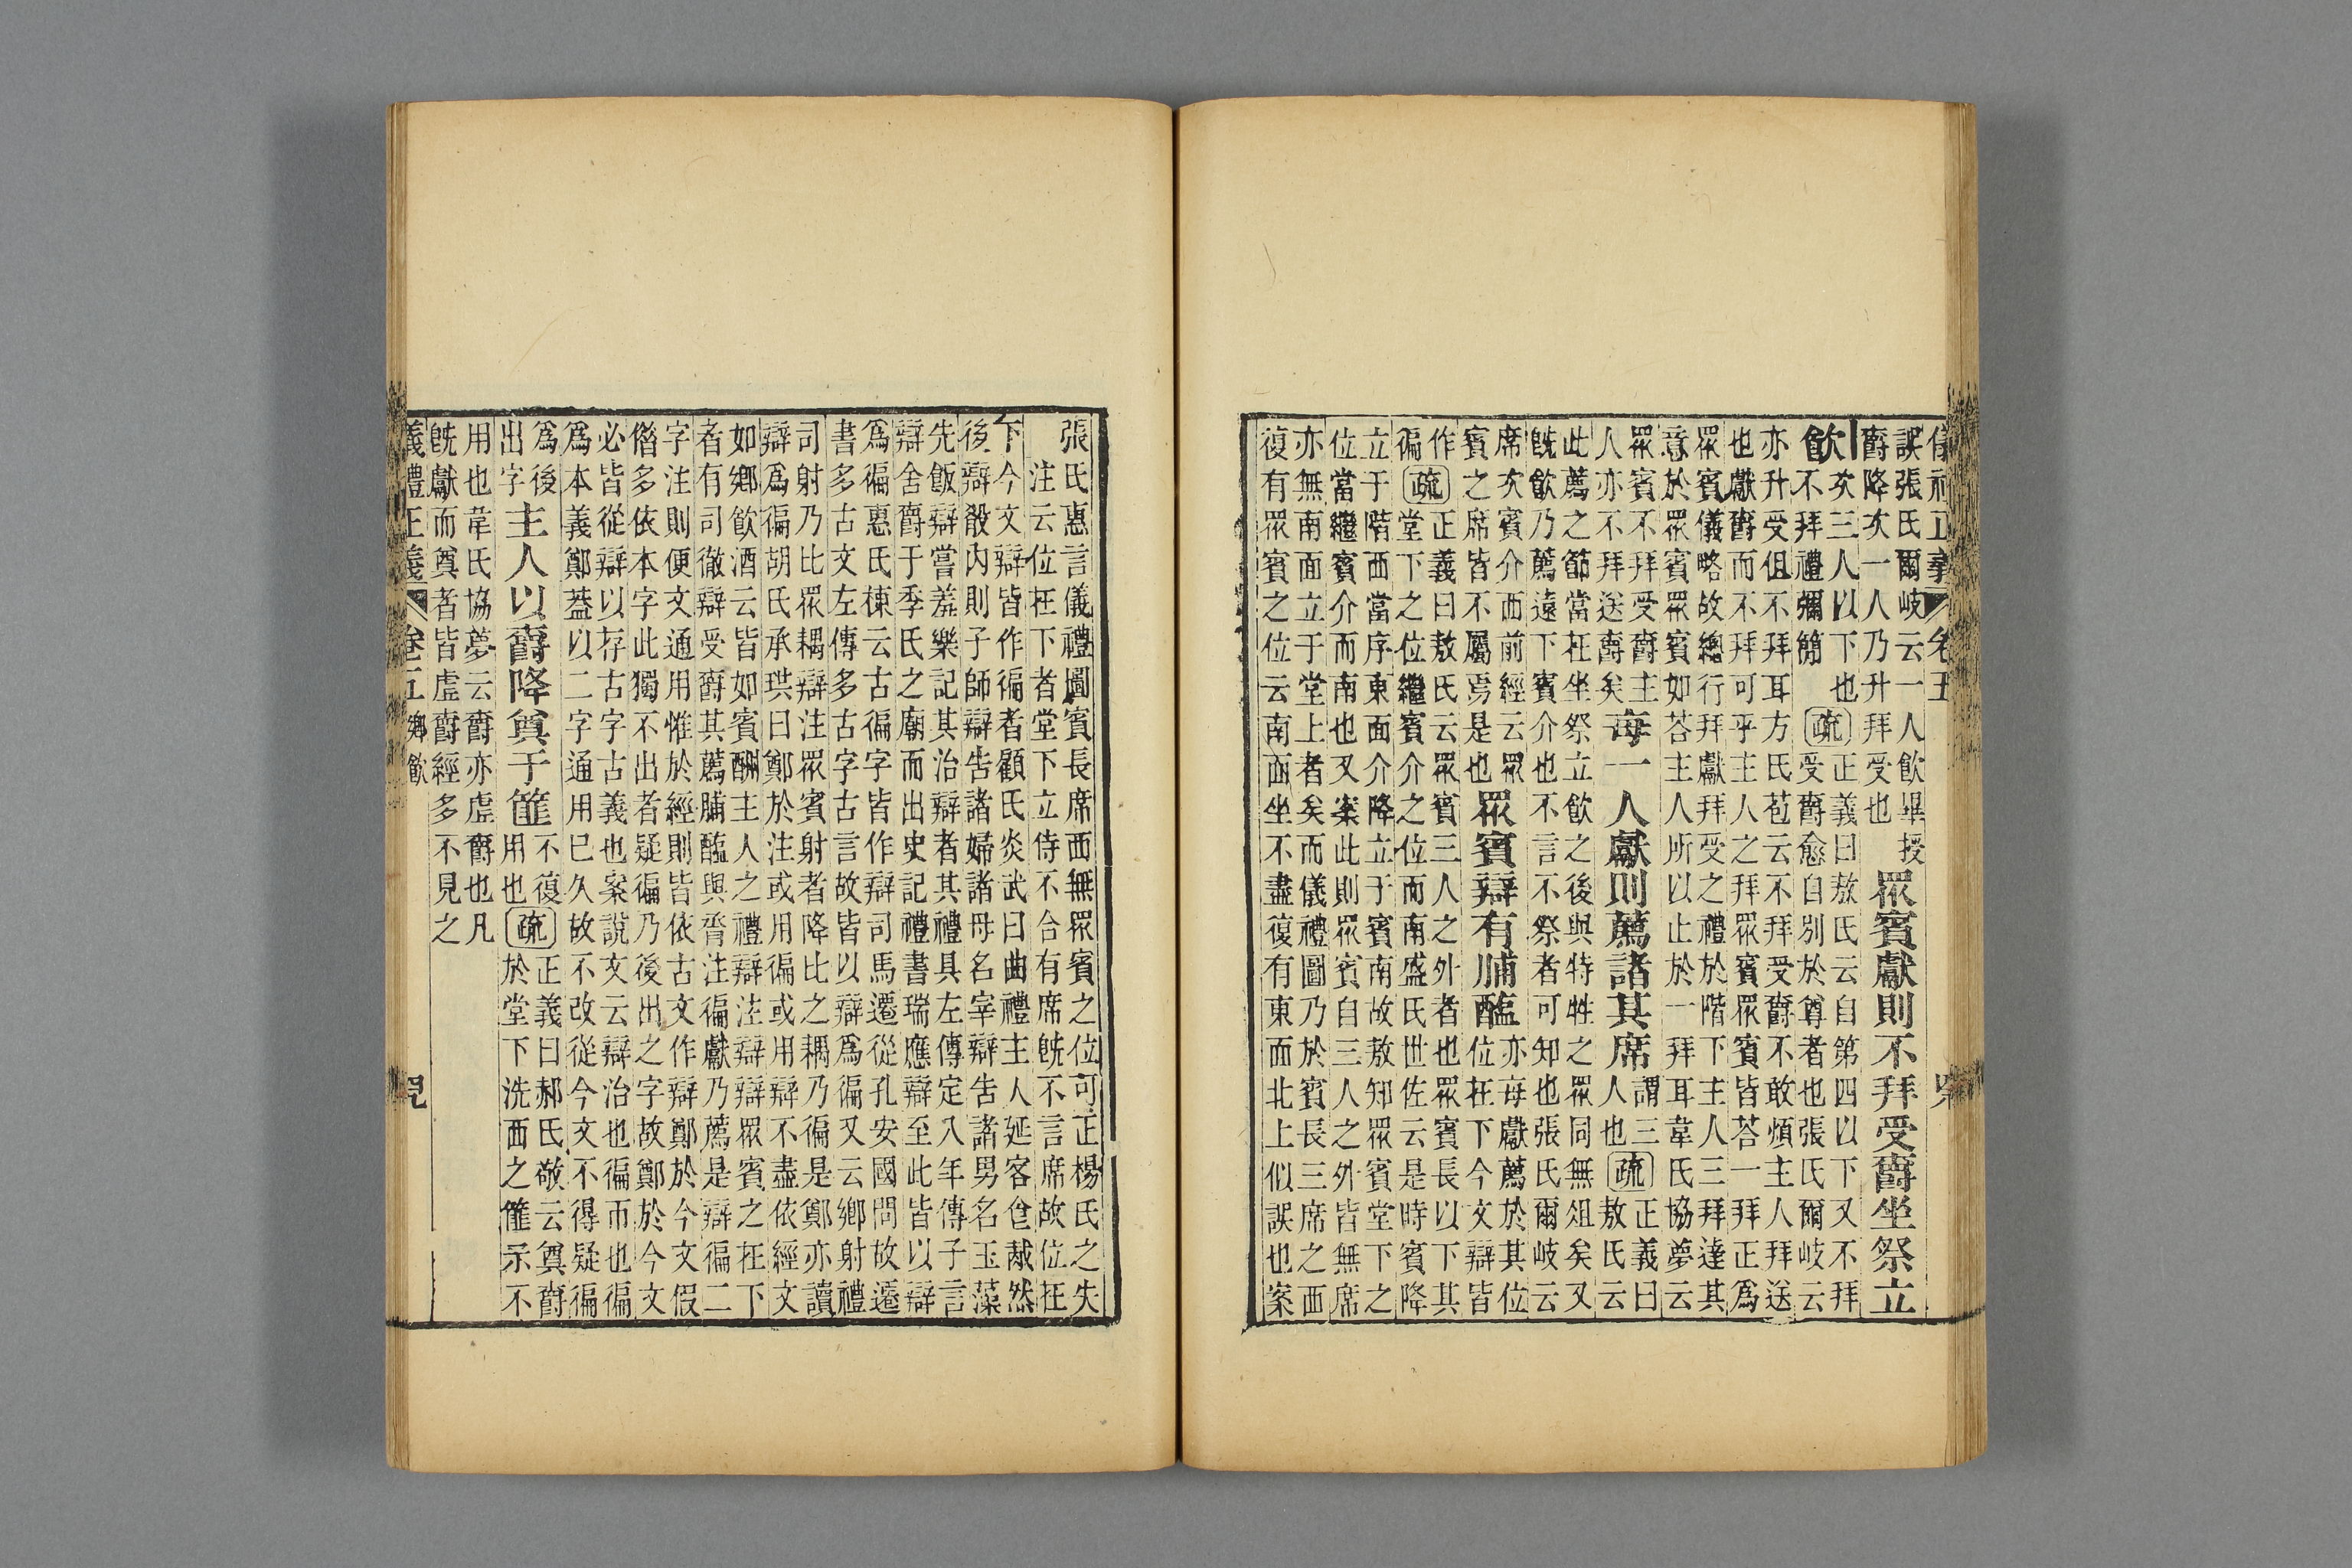 誤張氏爾岐云一人飲畢授
爵降次一人乃升拜受也
眾賓獻則不拜受爵坐祭立
飲
次三人以下也
不拜禮彌簡
疏
正義曰敖氏云自第四以下又不拜
受爵愈自別於尊者也張氏爾岐云
亦升受但不拜耳方氏苞云不拜受爵不敢煩主人拜送
也獻爵而不拜可乎主人之拜眾賓眾賓皆荅一拜正為
眾賓儀略故總行拜獻拜受之禮於階下主人三拜達其
意於眾賓眾賓如荅主人所以止於一拜耳韋氏協夢云
眾賓不拜受爵主
人亦不拜送爵矣
每一人獻則薦諸其席
謂三
人也
疏
正義曰
敖氏云
此薦之節當在坐祭立飲之後與特牲之眾同無俎矣又
旣飲乃薦遠下賓介也不言不祭者可知也張氏爾岐云
席次賓介西前經云眾
賓之席皆不屬焉是也
眾賓辯有脯醢
亦每獻薦於其位
位在下今文辯皆
作
徧
疏
正義曰敖氏云眾賓三人之外者也眾賓長以下其
堂下之位繼賓介之位而南盛氏世佐云是時賓降
立于階西當序東面介降立于賓南故敖知眾賓堂下之
位當繼賓介而南也又案此則眾賓自三人之外皆無席
亦無南面立于堂上者矣而儀禮圖乃於賓長三席之西
復有眾賓之位云南面坐不盡復有東面北上似誤也案
張氏惠言儀禮圖賓長席西無眾賓之位可正楊氏之失
注云位在下者堂下立侍不合有席旣不言席故位在
下今文辯皆作徧者顧氏炎武曰曲禮主人延客食胾然
後辯殽內則子師辯告諸婦諸母名宰辯告諸男名玉藻
先飯辯嘗羞樂記其治辯者其禮具左傳定八年傳子言
辯舍爵于季氏之廟而出史記禮書瑞應辯至此皆以辯
為徧惠氏棟云古徧字皆作辯司馬遷從孔安國問故遷
書多古文左傳多古字古言故皆以辯為徧又云鄉射禮
司射乃比眾耦辯注眾賓射者降比之耦乃徧是鄭亦讀
辯為徧胡氏承珙曰鄭於注或用徧或用辯不盡依經文
如鄉飲酒云皆如賓酬主人之禮辯注辯辯眾賓之在下
者有司徹辯受爵其薦脯醢與胥注徧獻乃薦是辯徧二
字注則便文通用惟於經則皆依古文作辯鄭於今文假
借多依本字此獨不出者疑徧乃後出之字故鄭於今文
必皆從辯以存古字古義也案說文云辯治也徧帀也徧
為本義鄭葢以二字通用已久故不改從今文不得疑徧
為後
出字
主人以爵降奠于篚
不復
用也
疏
正義曰郝氏敬云奠爵
於堂下洗西之篚示不
用也韋氏協夢云爵亦虛爵也凡
旣獻而奠者皆虛爵經多不見之
義禮正義 卷五 鄉飲